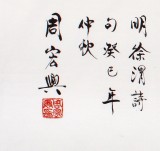 明徐渭詩
句癸巳年
仲秋
周宏興